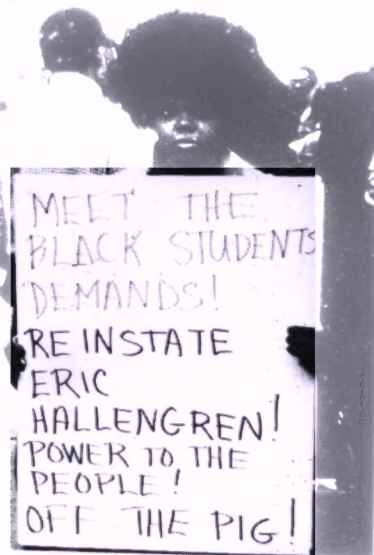 MEET THE
BLACK STUDENTS
DEMANDS!
REINSTATE
ERIC
HALLENGREN!
POWER TO THE
PEOPLE!
OFF THE PIG!